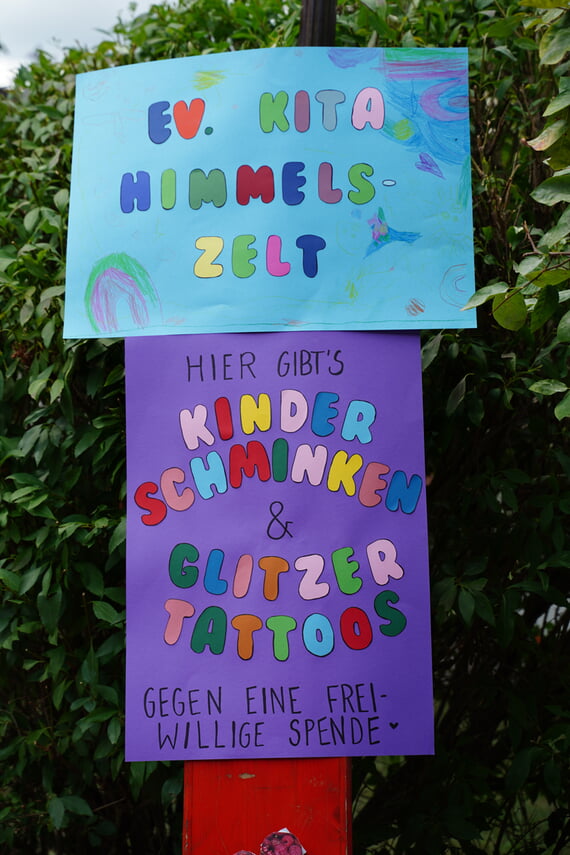 EV. KITA
HIMMELS-
ZELT
HIER GIBT'S
KINDER
SCHMINKEN
&
GLITZER
TATTOOS
GEGEN EINE FREI-
WILLIGE SPENDE